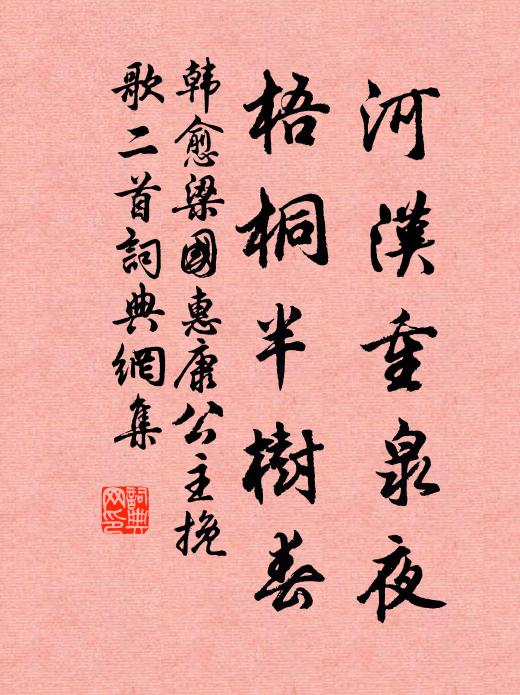 河漢重泉夜
梧桐半樹春
韓愈梁國惠康公主挽
歌二首詞典網集
詞典
网印